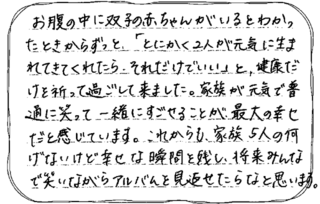 お腹の中に双子の赤ちゃんがいるとわかっ
たときからずっと、「とにかく2人が元気に生ま
れてきてくれたら、それだけでいい」と、健康だ
けを祈って過ごして来ました。家族が元気で普
通に笑って一緒にすごせることが、最大の幸せ
だと感じています。これからも、家族5人の何
げないけど幸せな瞬間を残し、将来みんな
で笑いながらアルバムを見返せたらなと思います。